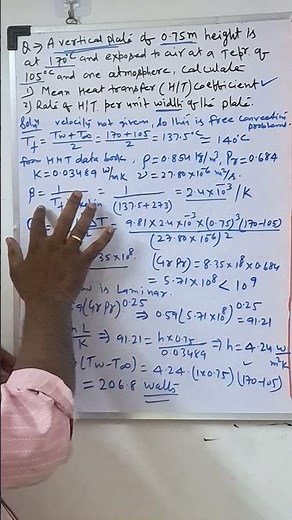 Q:→ A vertical plate of 0.75m height is
at 170°C and exposed to air at a Tepr. of
105°C and one atmosphere, calculate
1) Mean Heat transfer (H/T) Coefficient ✓
2) Rate of H/T per unit width of the plate.
Soln velocity not given, so this is free convection problem.
Tf = Tw+T∞/2 = 170+105/2 = 137.5°C ≈ 140°C
from HMT data book, ρ = 0.854 kg/m³, Pr = 0.684
K = 0.03489 W/mK ν = 27.80 x 10⁻⁶ m²/s.
β = 1/Tf = 1/(137.5+273) = 2.4x10⁻³/K
ΔT = 9.81 x 2.4 x10⁻³ x (0.75)³ (170-105)/(27.80 x10⁻⁶)²
.35x10⁸. (Gr Pr) = 8.35x10⁸ x 0.684
= 5.71x10⁸ < 10⁹
w is Laminar.
59(Gr Pr)^0.25 ⇒ 0.59(5.71x10⁸)^0.25 = 91.21
hL/K ⇒ 91.21 = h x 0.75/0.03489 ⇒ h = 4.24 w/m²K
(Tw-T∞) = 4.24 . (1x0.75) (170-105)
= 206.8 watts